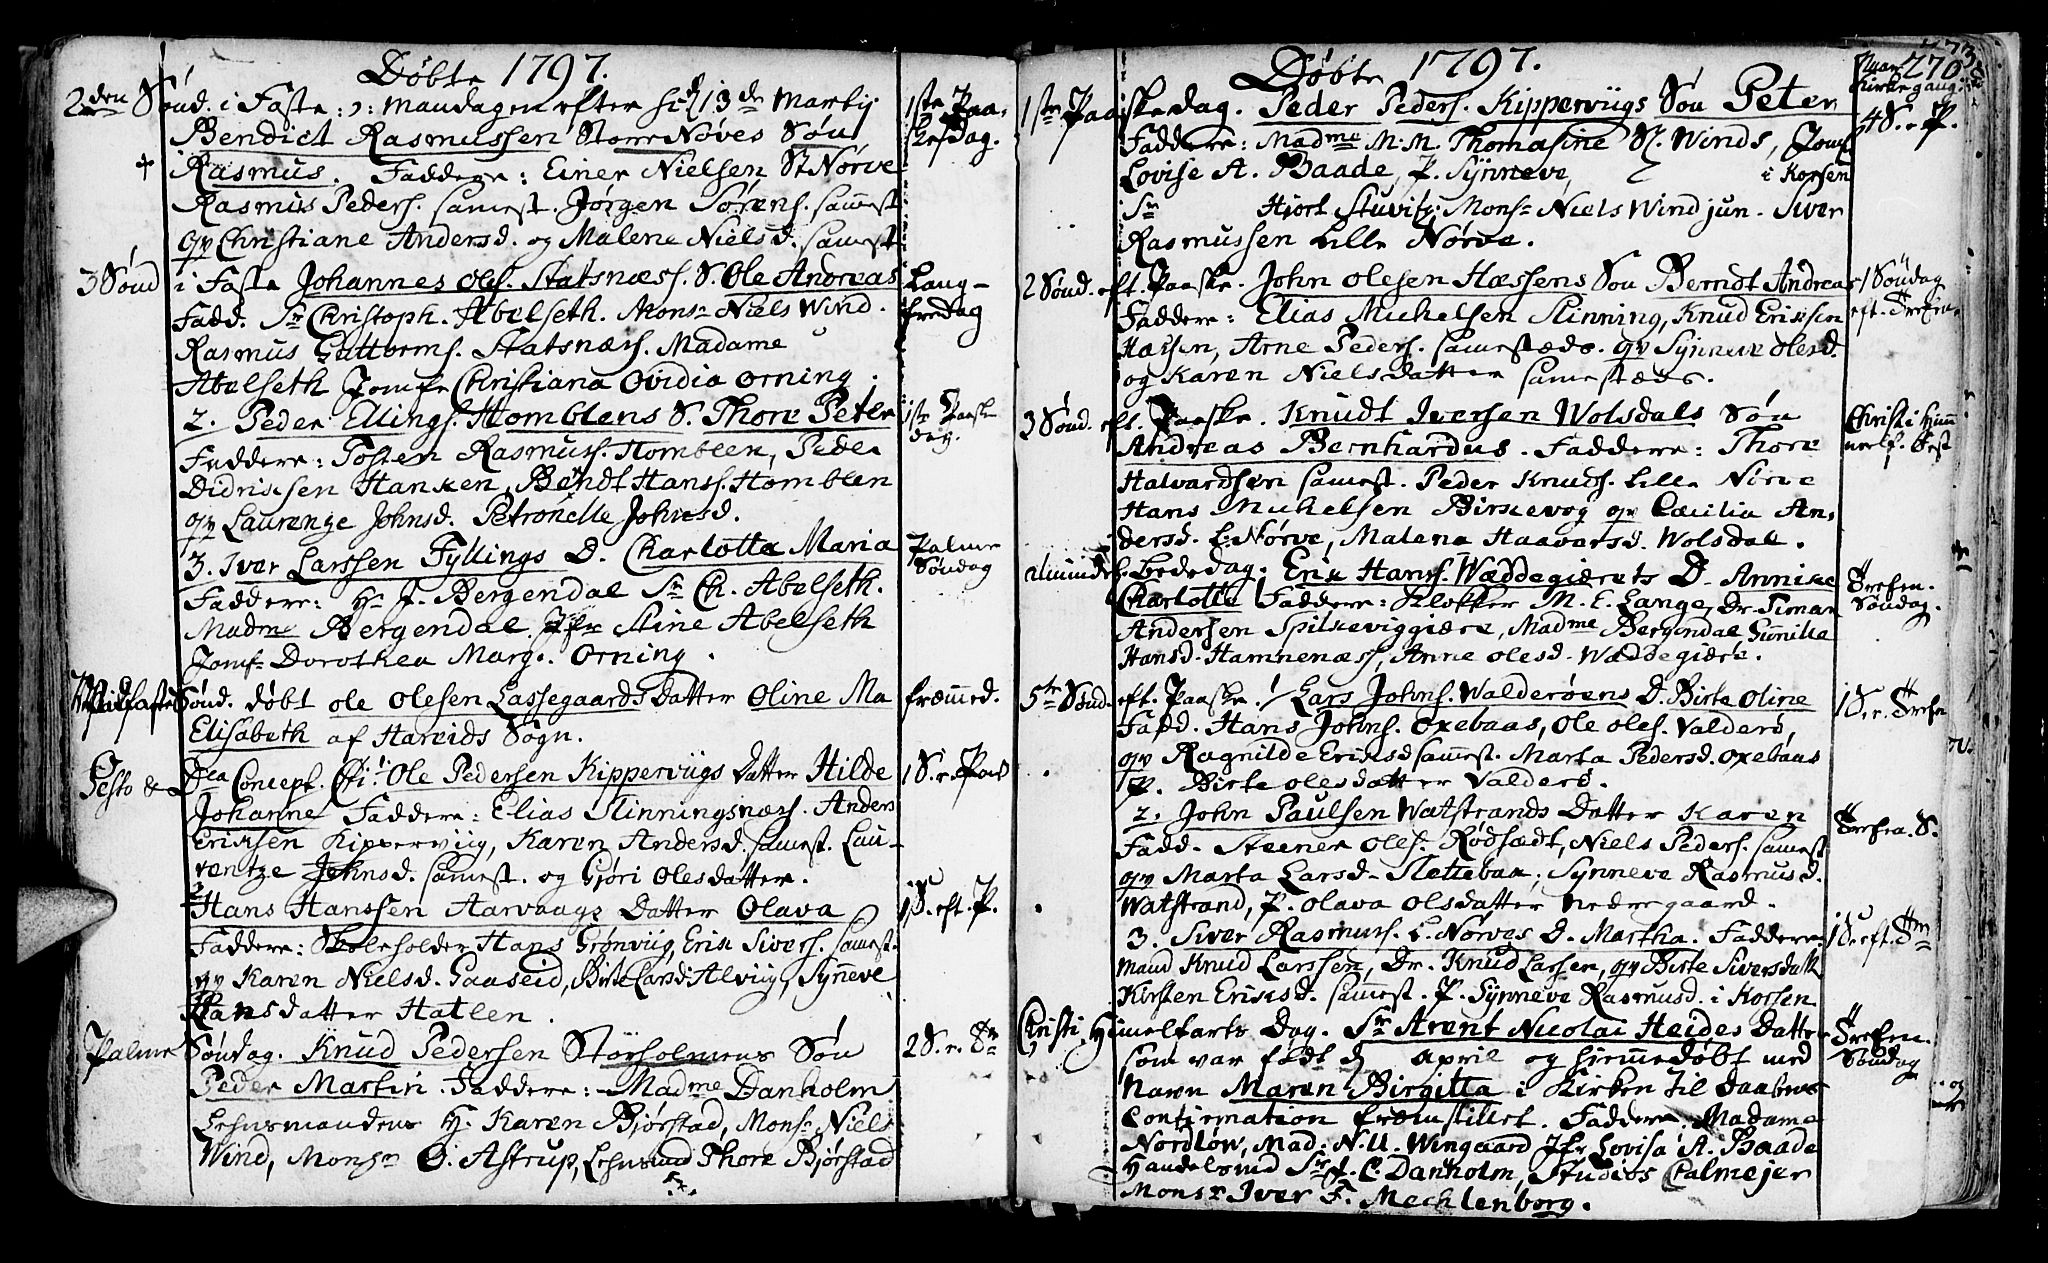 Døbte 1797.
2den Sønd. i Faste: ɔ: mandagen efter 13de Martij
Bendict Rasmussen Store Nøves Søn
Rasmus. Faddere: Einer Nielsen St Nørve
Rasmus Peders. samest. Jørgen Sørens. samest
qv Christiane Andersd. og Malene Nielsd. samest
1ste Paaskedag.
3 Sønd i Faste Johannes Oles. Statsnæss. S. Ole Andreas
Fadd. Sr Christoph. Abelseth. Monsr Niels Wind.
Rasmus Guttorms. Statsnæss. Madame
Abelseth Jomfr Christiana Ovidia Orning.
Langfredag
2. Peder Ellings. Homblens S. Thore Peter
Faddere: Tosten Rasmuss. Homblen, Peder
Didriksen Hanken, Bendt Hanss. Homblen
qv Laurenze Johnsd. Petronelle Johnsd.
1ste Paaske dag.
3. Iver Larssen Fyllings D. Charlotta Maria
Faddere: Hr J. Bergendal Sr Ch. Abelseth.
Madme Bergendal Jfr Stine Abelseth
Jomfr Dorothea Marg. Orning.
Palme Søndag
Midfaste Sønd. døbt ole olesen Lassegaards datter Oline Ma
Elisabeth af Hareids Sogn.
fræmmed.
Festo Concept. Chri: Ole Pedersen Kippervigs Datter Hilde
Johanne Faddere: Elias Slinningsnæss. Anders
Eriksen Kipperviig, Karen Andersd. samest. Lau-
rentze Johnsd. samest. og Gjøri Olesdatter.
2 Hans Hanssen Aarvaags Datter Olava
1 S. eft. P.
Faddere: Skoleholder Hans Grønviig, Erik Sivers. samest.
qv Karen Nielsd. Gaaseid, Birte Larsd. Alviig, Synneve
Hansdatter Hatlen.
Palme Søndag. Knud Pedersen Storholmens Søn
Peder Martin. Faddere: Madme Danholm
Lehnsmandens H. Karen Bjørstad, Monsr Niels
Wind, Monsr O. Astrup, Lehnsmd Thore Bjørstad
Døbte 1797.
270
Kirkegang:
1ste Paaskedag. Peder Peders. Kippervigs Søn Peter
Faddere: Madme M. M. Thomasine Sl. Winds, Jomf
Lovise A. Baade, P. Synneve, i Korsen
Sr Hjort Stuvitz: Monsr Niels Wind jun. Siver
Rasmussen Lille Nørve.
2 Sønd. eft. Paaske. John Olesen Hæssens Søn Berndt Andreas
Faddere: Elias Michelsen Slinning, Knud Eriksen
Hæssen, Arne Peders. samestæds. qv Synneve Olesd.
og Karen Nielsdatter samestæds.
1 Søndag
3 Sønd. eft. Paaske. Knudt Iversen Wolsdals Søn
Andreas Bernhardus. Faddere: Thore
Halvardsen samest. Peder Knuds. Lille Nørve
Hans Michelsen Birkevog qv Cæcilia An-
dersd. L. Nørve, Malena Haavarsd. Wolsdal.
Christi Himmelf. Fest
Bededag. Erik Hanss. Wæddegjærets D. Annike
Charlotte Faddere: Klokker M. E. Lange, Dr. Timan
Andersen Spilkeviggjære, Madme Bergendal Gunnilia
Hansd. Hamnenæss, Anne Olesd. Wæddegjære.
Søndag.
5te Sønd. eft. Paaske. 1 Lars Johns. Walderøens D. Birte Oline
Fadd. Hans Johns. Oxebaas, Ole Oles. Valderø,
qv Ragnilde Eriksd. samest. Marta Pedersd. Oxebaas
P. Birte Olesdatter Valderø.
2. John Paulsen Watstrands Datter Karen
Fadd. Steener Oles. Rødsædt, Niels Peders. samest
qv Marta Larsd. Slettebak, Synneve Rasmusd.
Watstrand, P. Olava Olsdatter Nedregaard.
3. Siver Rasmuss. L. Nørves D. Martha. Faddere:
mand Knud Larssen, Dr. Knud Larsen, qv Birte Siversdatt
Kirsten Eriksd. samest. P. Synneve Rasmusd. i Korsen
Christi Himelfarts Dag. Sr Arent Nicolai Heides Datter
som var født d april og hjemmedøbt med
Navn Maren Birgitta i Kirken til Daabens
Confirmation fræmstillet. Faddere. Madame
Nordløw, Mad. N. U. Wingaard Jfr Lovisa A. Baade
Handelsmd Sr J. C. Danholm, Studios Calmejer
Monsr Iver F. Mechlenborg.
Søndag